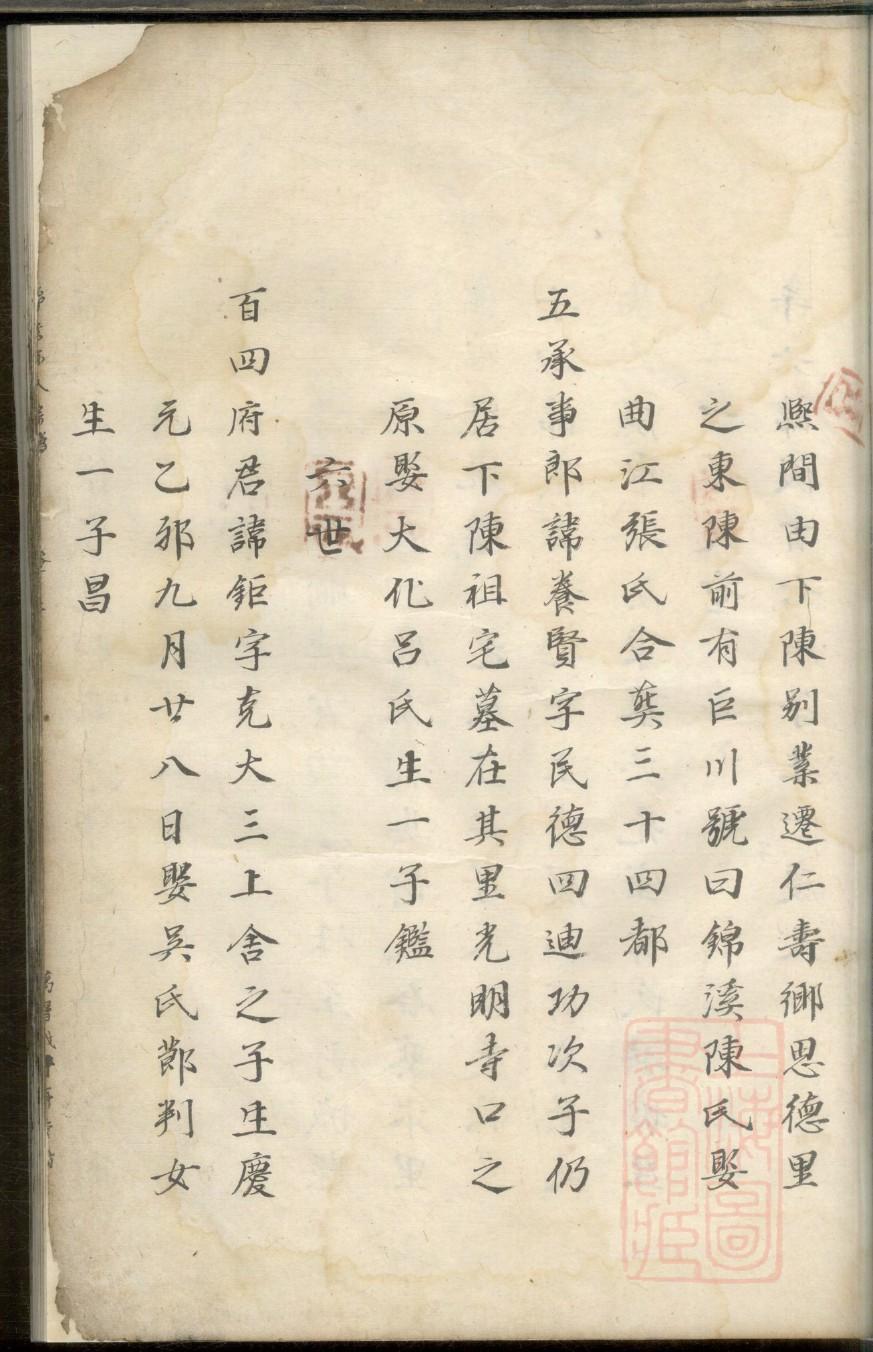 熈間由下陳别業遷仁壽鄉思德里
之東陳前有巨川號曰錦溪陳氏娶
曲江張氏合葬三十四都
五承事郎諱養賢字民德四迪功次子仍
居下陳祖宅墓在其里光明寺口之
原娶大化吕氏生一子鑑
六世
百四府君諱鉅字克大三上舍之子生慶
元乙卯九月廿八日娶吳氏節判女
生一子昌
上海圖書館臧